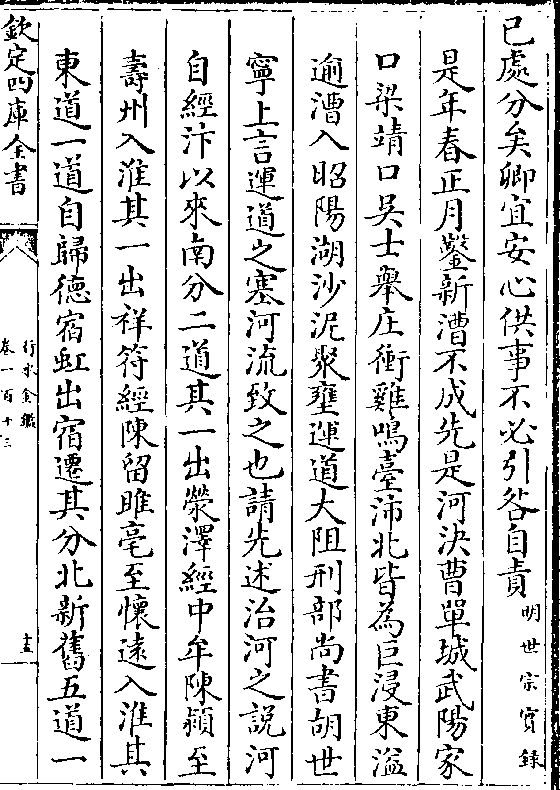 已處分矣卿宜安心供事不必引咎自責明世宗實錄
是年春正月鑿新漕不成先是河決曹單城武陽家
口梁靖口吳士舉庄衝雞鳴臺沛北皆為巨浸東溢
逾漕入昭陽湖沙泥聚壅運道大阻刑部尚書胡世
寧上言運道之塞河流致之也請先述治河之說河
自經汴以來南分二道其一出滎澤經中牟陳潁至
壽州入淮其一出祥符經陳留睢亳至懷遠入淮其
東道一道自歸德宿虹出宿遷其分北新舊五道一
欽定四庫全書
行水金鑑
卷一百十三
十五